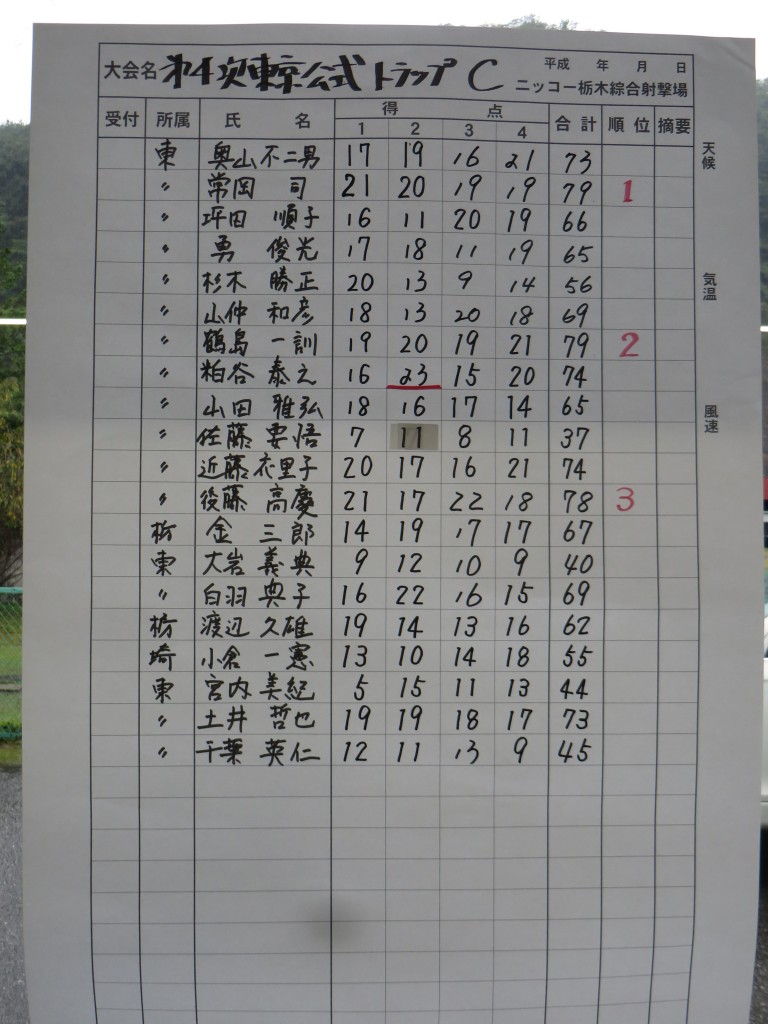 大会名 第4次東京公式トラップ C 平成 年 月 日
ニッコー栃木綜合射撃場
受付 所属 氏 名 得 点 合計 順位 摘要
1 2 3 4
東 奥山不二男 17 19 16 21 73
〃 常岡 司 21 20 19 19 79 1
〃 坪田 順子 16 11 20 19 66
〃 勇 俊光 17 18 11 19 65
〃 杉木 勝正 20 13 9 14 56
〃 山仲 和彦 18 13 20 18 69
〃 鶴島 一訓 19 20 19 21 79 2
〃 粕谷 泰之 16 23 15 20 74
〃 山田 雅弘 18 16 17 14 65
〃 佐藤 要悟 7 11 8 11 37
〃 近藤衣里子 20 17 16 21 74
〃 後藤 高慶 21 17 22 18 78 3
栃 金 三郎 14 19 17 17 67
東 大岩 義典 9 12 10 9 40
〃 白羽 典子 16 22 16 15 69
栃 渡辺 久雄 19 14 13 16 62
埼 小倉 一憲 13 10 14 18 55
東 宮内 美紀 5 15 11 13 44
〃 土井 哲也 19 19 18 17 73
〃 千葉 英仁 12 11 13 9 45
天候
気温
風速